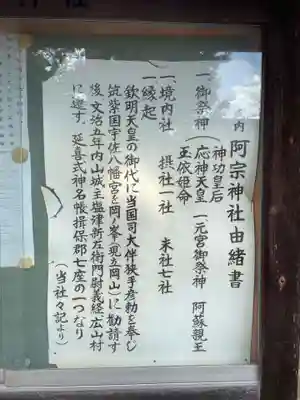 式内 阿宗神社由緒書
一、御祭神
神功皇后
応神天皇
玉依姫命
一元宮御祭神 阿蘇親王
一、境内社 摂社一社 末社七社
一縁起
欽明天皇の御代に当国司大伴狭手彦勅を奉じ
筑紫国宇佐八幡宮を岡ノ峯(現立岡山)に勧請す
後文治五年内山城主塩津新左衛門尉義経広山村
に遷す。延喜式神名帳揖保郡七座の一つなり
(当社々記より)